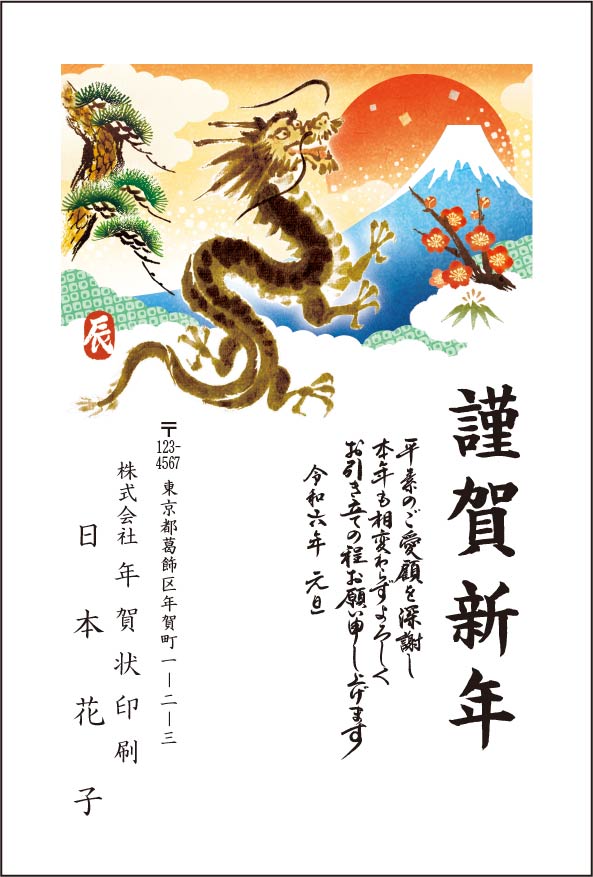 謹賀新年
平素のご愛顧を深謝し
本年も相変わらずよろしく
お引き立ての程お願い申し上げます
令和六年 元旦
辰
〒123-4567
東京都葛飾区年賀町一―二―三
株式会社 年賀状印刷
日本花子